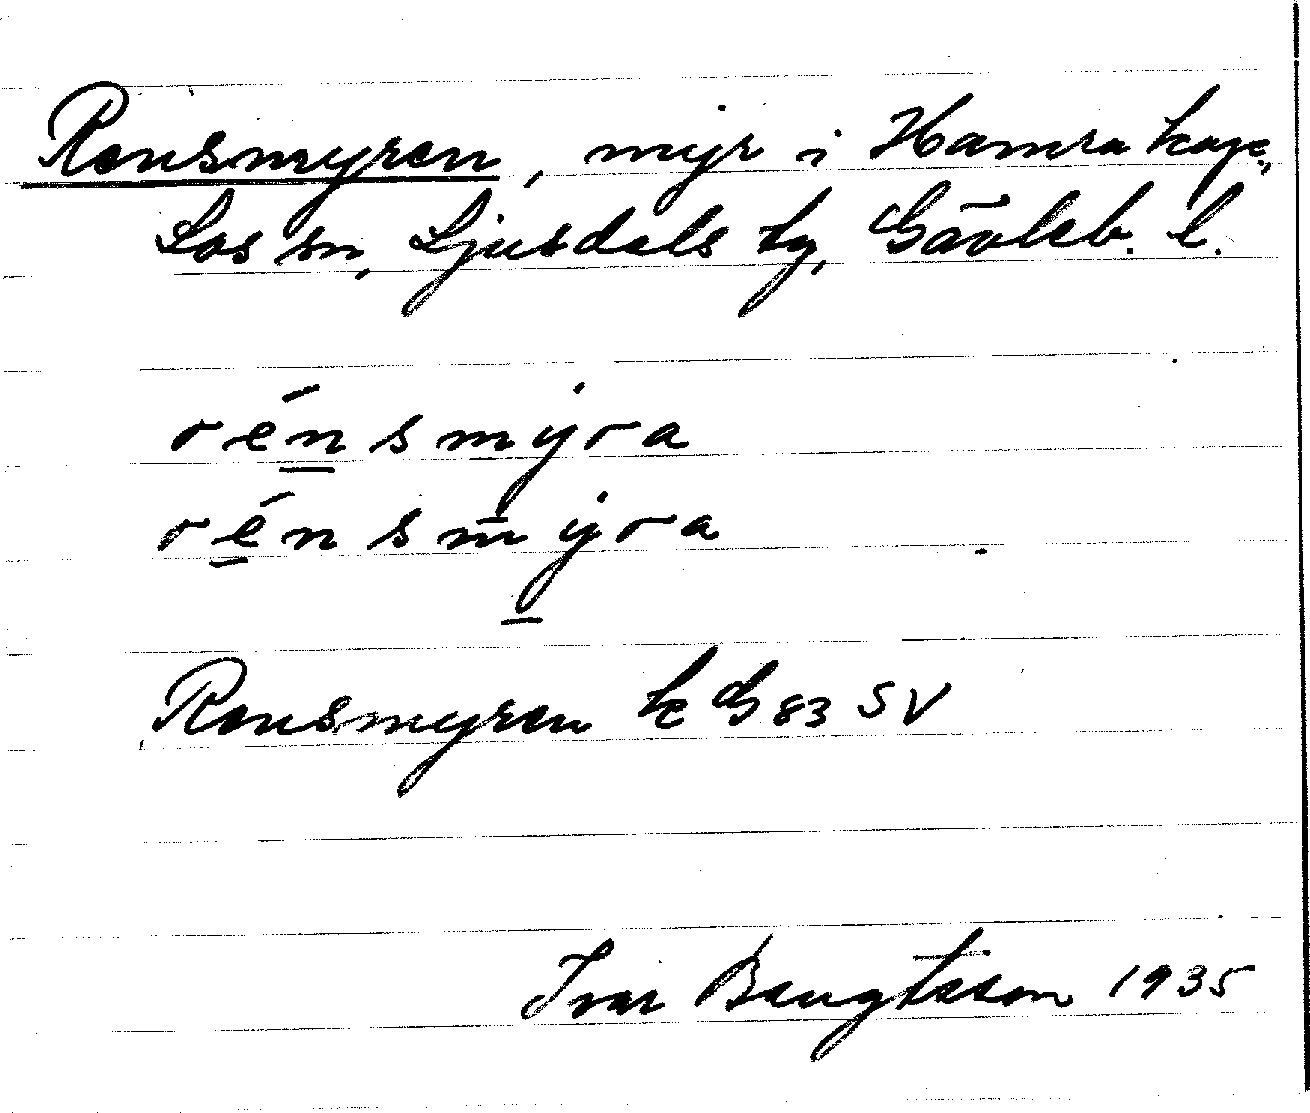 Rensmyren, myr i Hamra kap.,
Los sn, Ljusdals tg, Gävleb. l.
rénsmyra
rénsmyra
Rensmyren k G 83 SV
Ivar Bengtsson 1935